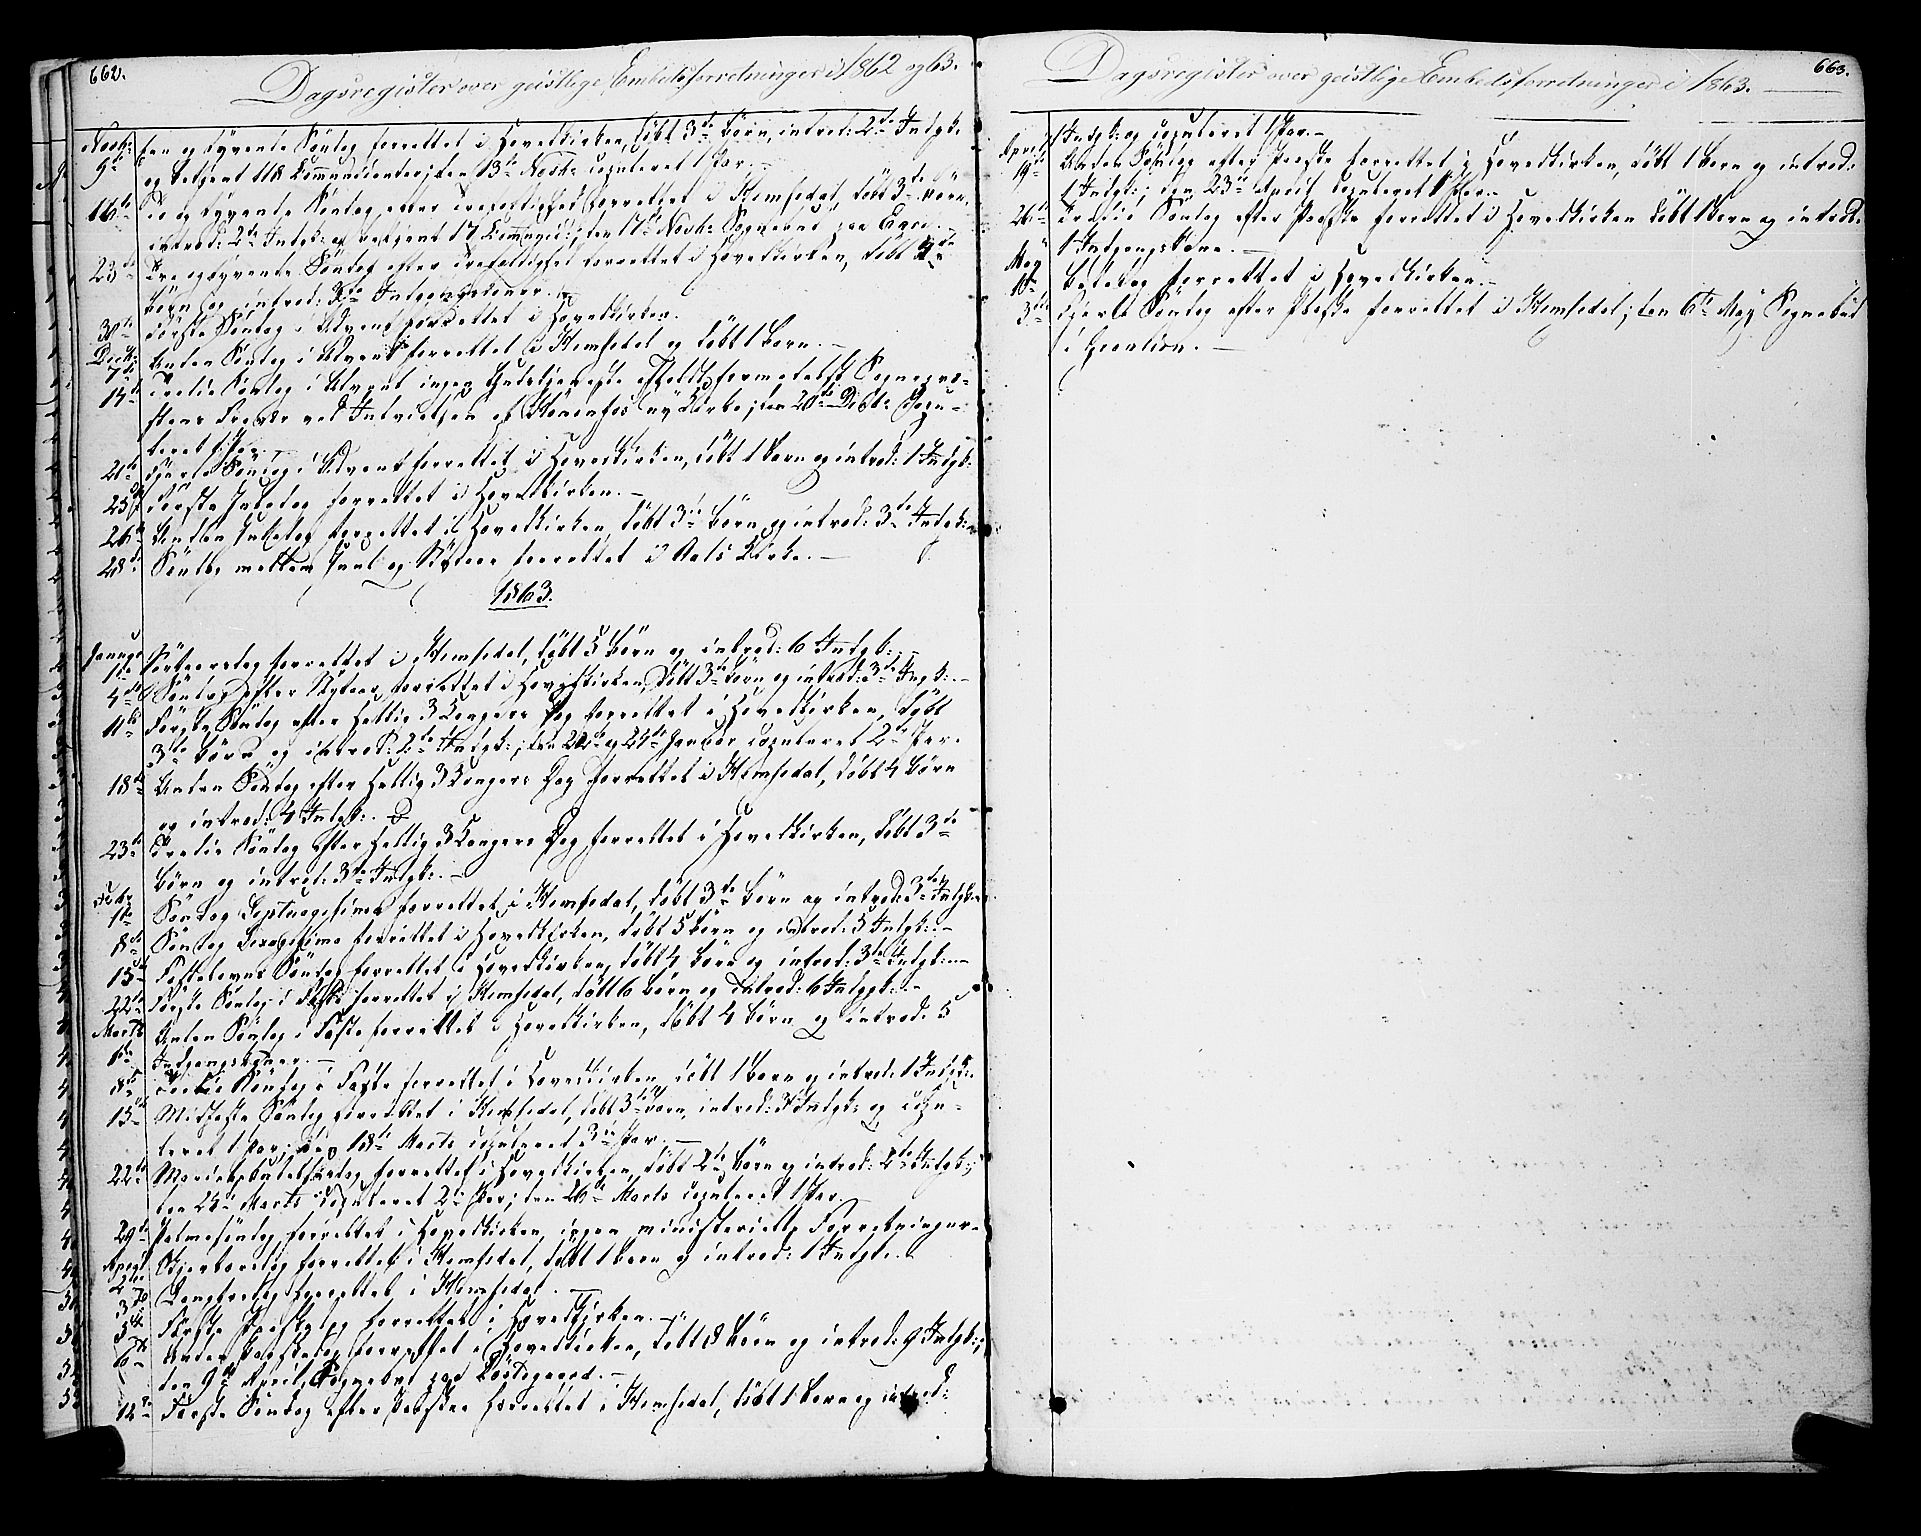 662.
Dagsregister over geistlige Embedsforretninger i 1862 og 63.
Novb: en og tyvende Söndag forrettet i Hovedkirken, döbt 3de Börn, introd: 2de Indgk.
9de og betjent 118 Communicenter; den 13de Novbr copuleret 1 Par. —
16de To og tyvende Söndag efter Trefoldighed forrettet i Hemsedal, döbt 3de Börn,
introd: 2de Indgk: og betjent 17 Communic:; den 17de Novbr: Sognebud paa
23de Tre og tyvende Söndag efter Trefoldighed forrettet i Hovedkirken, döbt 4de
Börn og introd: 3de Indgangskoner. —
30te Förste Söndag i Advent forrettet i Hovedkirken.
Decb: 7de Anden Söndag i Advent forrettet i Hemsedal og döbt 1 Barn. —
14de Tredie Söndag i Advent ingen Gudstjeneste Sognepræ-
stens Fravær ved Indvielsen af Hönefos ny Kirke; den 20de Decbr Copu-
leret 1 Par. —
21de Fjerde Söndag i Advent forrettet i Hovedkirken, döbt 1 Barn og introd: 1 Indgk:
25de Förste Juledag forrettet i Hovedkirken. —
26de Anden Juledag forrettet i Hovedkirken, döbt 3de Börn og introd: 3de Indgk:
28de Söndag mellem Juul og Nytaar forrettet i Aals Kirke. —
1863.
Januar 1ste Nytaarsdag forrettet i Hemsedal, döbt 5 Börn og introd: 6 Indgk: —
4de Söndag efter Nytaar forrettet i Hovedkirken, döbt 3de Börn og introd: 3de Indgk: —
11te Förste Söndag efter Hellig 3 Kongers Dag forrettet i Hovedkirken, döbt
3de Börn og introd: 2de Indgk:; den 22de og 24de Januar copuleret 2de Par.
18de Anden Söndag efter Hellig 3 Kongers Dag forrettet i Hemsedal, döbt 4 Börn
og introd: 4 Indgk:. —
23de Tredie Söndag efter Hellig 3 Kongers Dag forrettet i Hovedkirken, döbt 3de
Börn og introd: 3de Indgk:. —
Febr 1ste Söndag Septuagesima forrettet i Hemsedal, döbt 3de Börn og introd: 3de Indgk:
18de Söndag Sexagesima forrettet i Hovedkirken, döbt 5 Börn og introd: 5 Indgk: —
15de Fastelavns Söndag forrettet i Hovedkirken, döbt 4 Börn og introd: 3de Indgk: —
22de Förste Söndag i Faste forrettet i Hemsedal, döbt 6 Börn og introd: 6 Indgk: —
Marts 1ste Anden Söndag i Faste forrettet i Hovedkirken, döbt 4 Börn og introd: 5
Indgangskoner. —
8de Tredie Söndag i Faste forrettet i Hovedkirken, döbt 1 Barn og introd: 1 Indgk:
15de Midfaste Söndag forrettet i Hemsedal, döbt 3de Börn, introd: 3 Indgk: og copu-
leret 1 Par; den 18de Marts copuleret 3de Par. —
22de Mariæ Bebudelsesdag forrettet i Hovedkirken, döbt 2de Börn og introd: 2de Indgk:;
den 25de Marts copuleret 2de Par; den 26de Marts copuleret 1 Par.
29de Palmesöndag forrettet i Hovedkirken, ingen ministerielle Forretninger.
April 2den Skjærtorsdag forrettet i Hemsedal, döbt 1 Barn og introd: 1 Indgk. —
3die Langfredag forrettet i Hemsedal. —
5te Förste Paaskedag forrettet i Hovedkirken. —
6te Anden Paaskedag forrettet i Hovedkirken, döbt 8 Börn og introd: 9 Indgk:;
den 9de April Sognebud paa —
12te Förste Söndag efter Paaske forrettet i Hemsedal, döbt 1 Barn og introd:
663.
Dagsregister over geistlige Embedsforretninger i 1863. —
1 Indgk: og copuleret 1 Par. —
April 19de Anden Söndag efter Paaske forrettet i Hovedkirken, döbt 1 Barn og introd:
1 Indgk:; den 23de April copuleret 1 Par. —
26de Tredie Söndag efter Paaske forrettet i Hovedkirken döbt 1 Barn og introd:
1 Indgangskone. —
May 1ste Bededag forrettet i Hovedkirken. —
3die Fjerde Söndag efter Paaske forrettet i Hemsedal; den 6te May Sognebud
i —